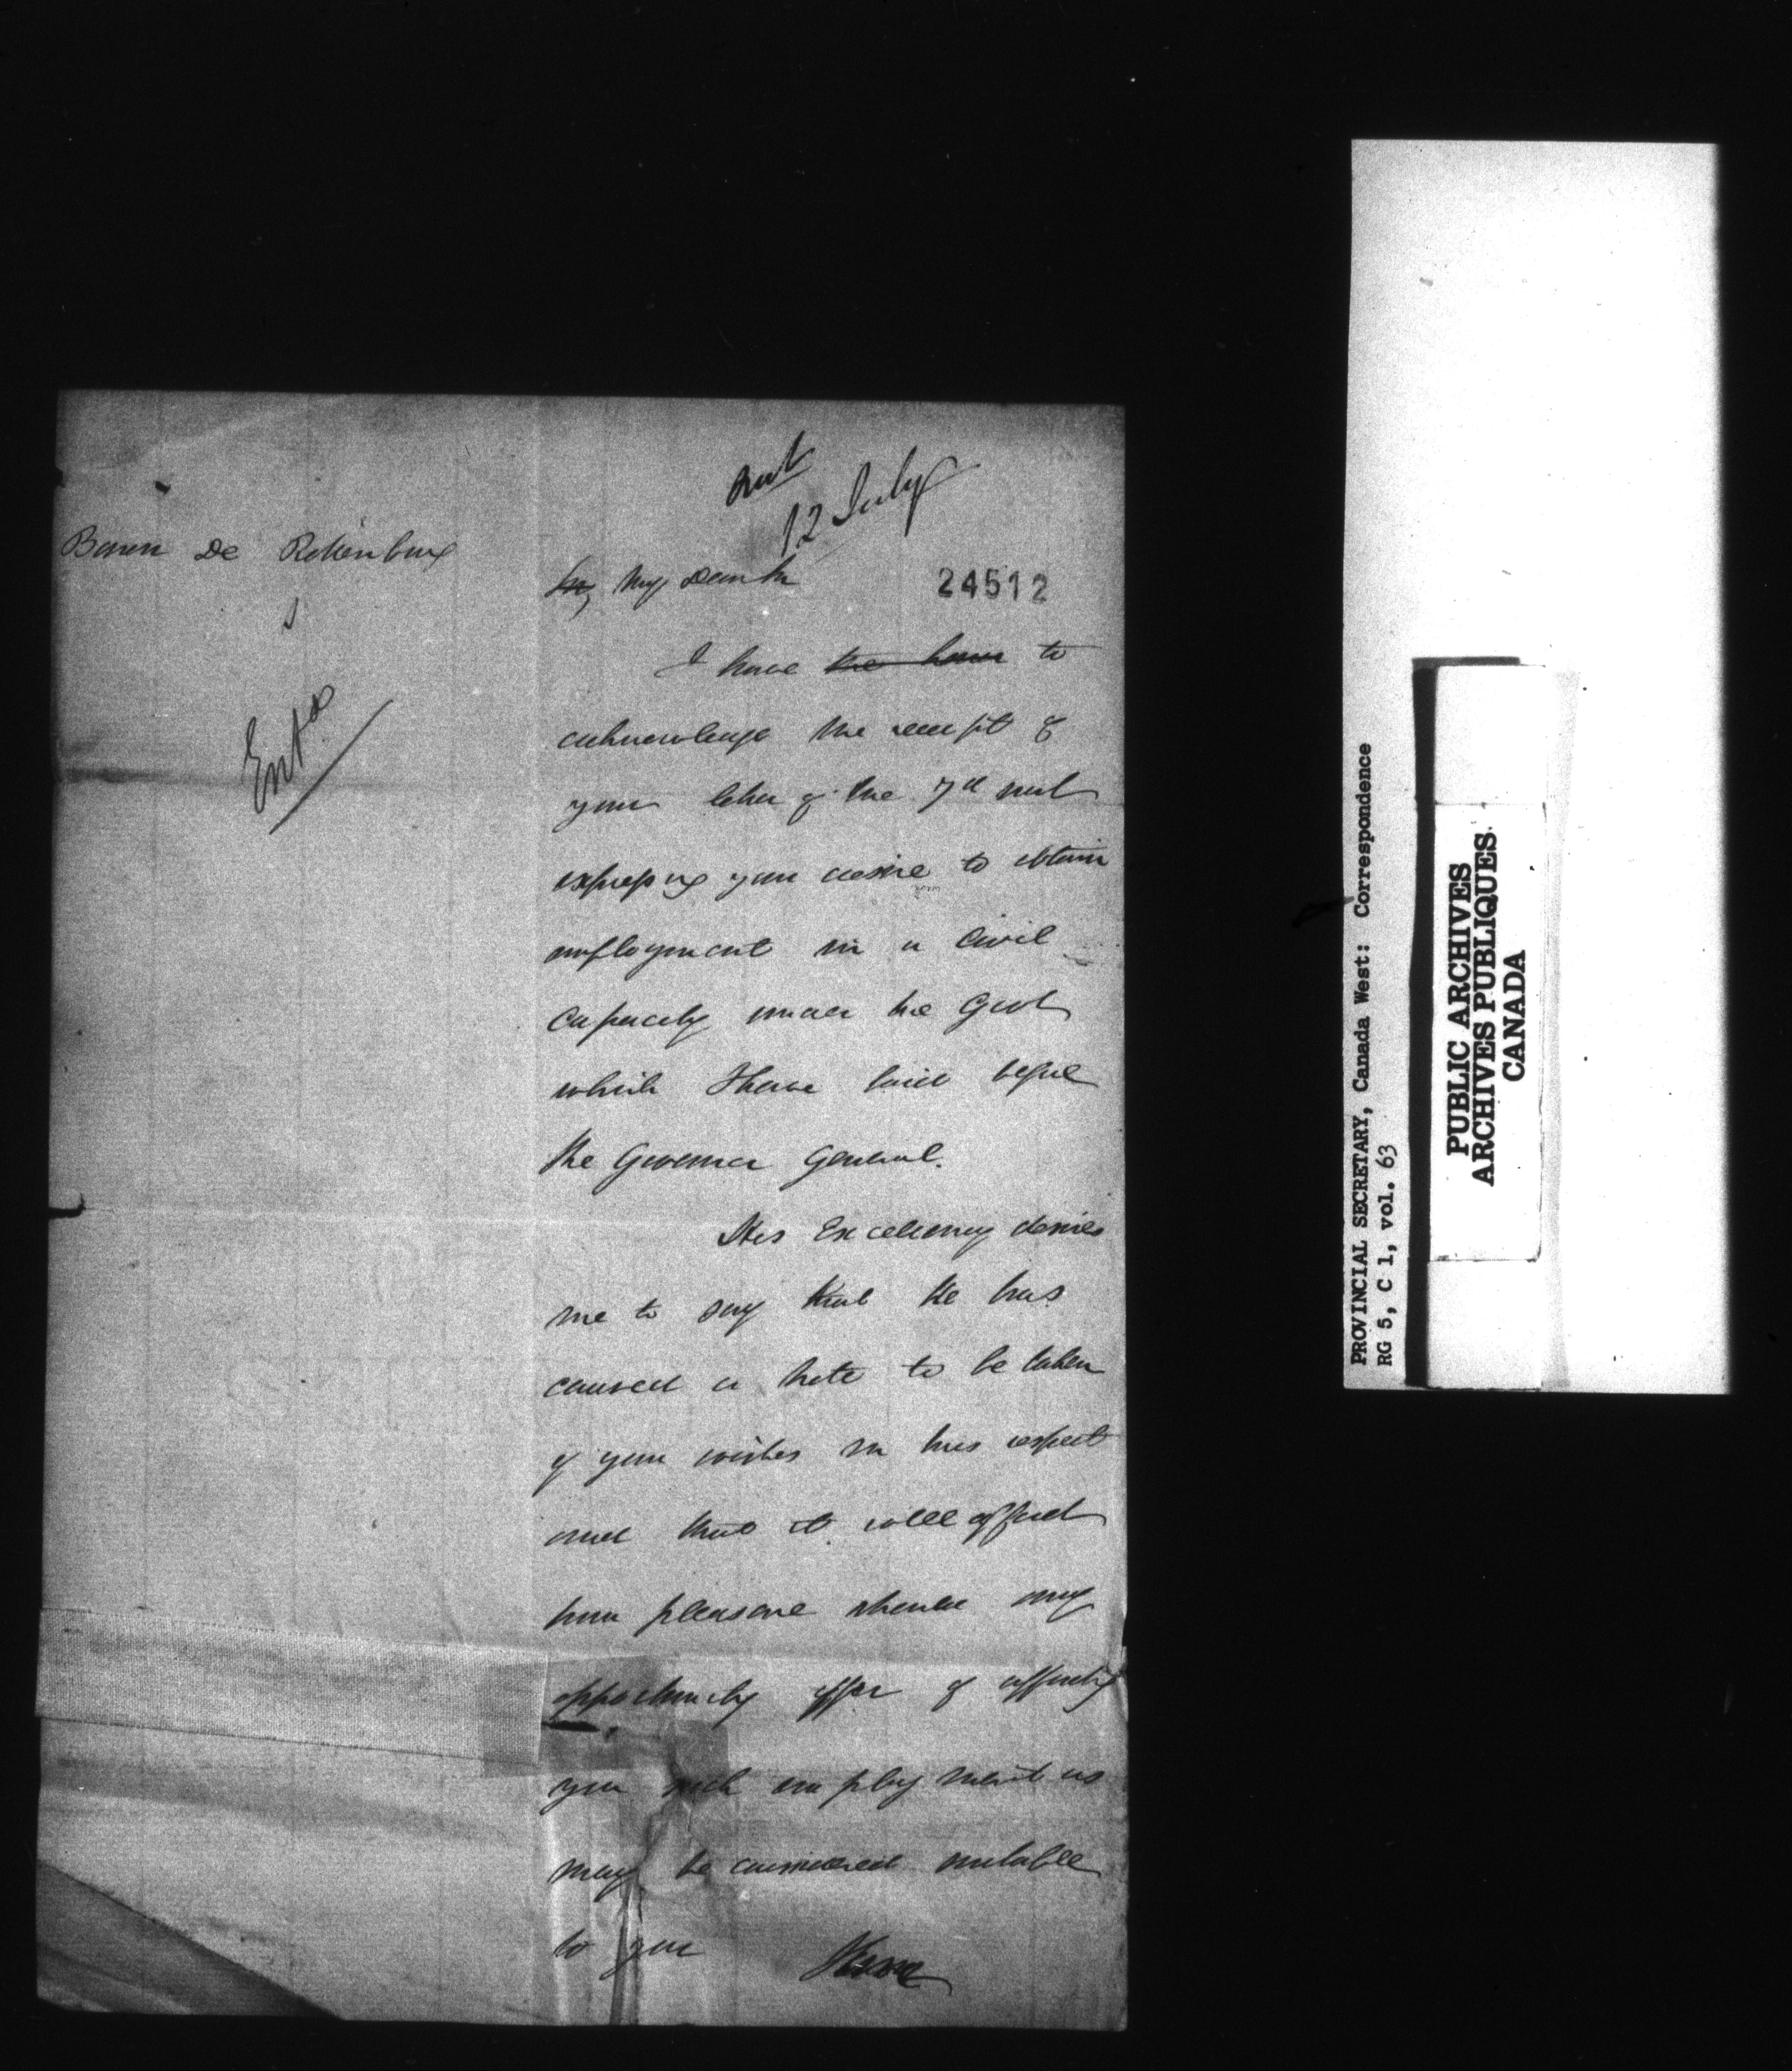 12 July
Baron De Rottenburg
Ent^d.
Sir, My Dear Sir
24512
I have the honor to
acknowledge the receipt of
your letter of the 7th inst
expressing your desire to obtain
employment in a Civil
Capacity under the Govt
which I have laid before
the Governor General.
His Excellency desires
me to say that He has
caused a note to be taken
of your wishes in this respect
and that it will afford
him pleasure should any
opportunity offer of affording
you such employment as
may be considered suitable
to you
PROVINCIAL SECRETARY, Canada West: Correspondence
RG 5, C 1, vol. 63
PUBLIC ARCHIVES
ARCHIVES PUBLIQUES
CANADA